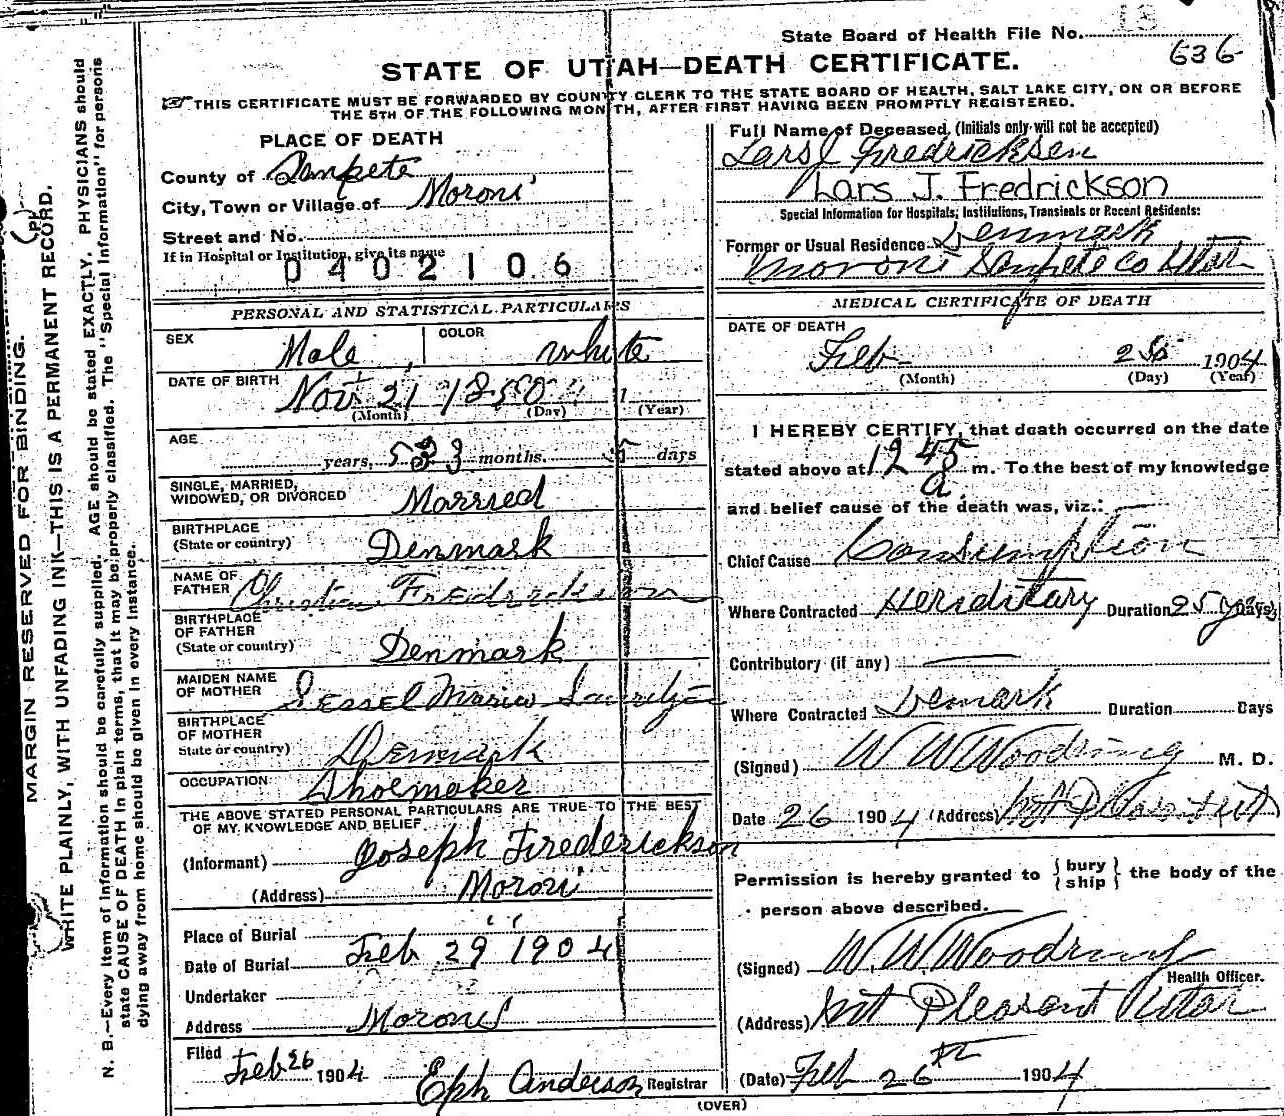 State Board of Health File No. 18
636
STATE OF UTAH—DEATH CERTIFICATE.
THIS CERTIFICATE MUST BE FORWARDED BY COUNTY CLERK TO THE STATE BOARD OF HEALTH, SALT LAKE CITY, ON OR BEFORE
THE 5TH OF THE FOLLOWING MONTH, AFTER FIRST HAVING BEEN PROMPTLY REGISTERED.
MARGIN RESERVED FOR BINDING.
WRITE PLAINLY, WITH UNFADING INK—THIS IS A PERMANENT RECORD.
N. B.—Every item of information should be carefully supplied. AGE should be stated EXACTLY. PHYSICIANS should
state CAUSE OF DEATH in plain terms, that it may be properly classified. The "Special Information" for persons
dying away from home should be given in every instance.
PLACE OF DEATH
County of Sanpete
City, Town or Village of Moroni
Street and No.
If in Hospital or Institution, give its name
0402106
PERSONAL AND STATISTICAL PARTICULARS
SEX Male COLOR white
DATE OF BIRTH Nov 21 1850
(Month) (Day) (Year)
AGE
years, 53 3 months. 5 days
SINGLE, MARRIED,
WIDOWED, OR DIVORCED Married
BIRTHPLACE
(State or country) Denmark
NAME OF
FATHER Christian Fredrickson
BIRTHPLACE
OF FATHER
(State or country) Denmark
MAIDEN NAME
OF MOTHER Sessel Maria
BIRTHPLACE
OF MOTHER
State or country) Denmark
OCCUPATION Shoemaker
THE ABOVE STATED PERSONAL PARTICULARS ARE TRUE TO THE BEST
OF MY KNOWLEDGE AND BELIEF
(Informant) Joseph Frederickson
(Address) Moroni
Place of Burial " "
Date of Burial Feb 29 1904
Undertaker
Address Moroni
Filed
Feb 26 1904 Eph Anderson Registrar
Full Name of Deceased. (Initials only will not be accepted)
Lars J Fredricksen
Lars J. Fredrickson
Special Information for Hospitals, Institutions, Transients or Recent Residents:
Former or Usual Residence Denmark
Moroni Sanpete co Utah
MEDICAL CERTIFICATE OF DEATH
DATE OF DEATH
Feb 26 1904
(Month) (Day) (Year)
I HEREBY CERTIFY, that death occurred on the date
stated above at 12 45 a m. To the best of my knowledge
and belief cause of the death was, viz.:
Chief Cause Consumption
Where Contracted Heriditary Duration 25 years Days
Contributory (if any)
Where Contracted Demark Duration Days
(Signed) W W Woodring M. D.
Date 26 1904 (Address) Mt Pleasant
Permission is hereby granted to { bury / ship } the body of the
person above described.
(Signed) W. W. Woodring
Health Officer.
(Address) Mt Pleasant Utah
(Date) Feb 26th 1904
(OVER)